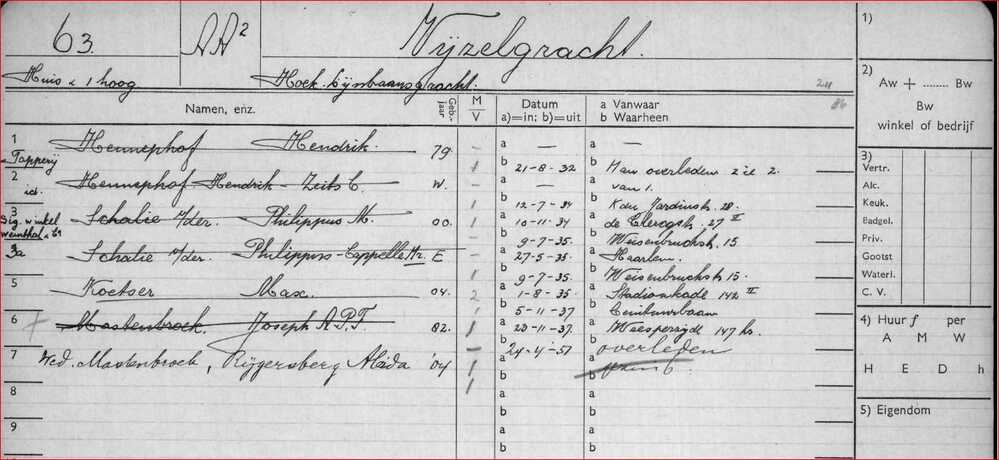 63 AA² Vijzelgracht.
Huis & 1 hoog Hoek Lijnbaansgracht.
24
86
Namen, enz. Geb.-jaar M V Datum a)=in; b)=uit a Vanwaar b Waarheen
1 Hennephof Hendrik. 79 — a — —
Tapperij 1 b 21-8-32 Man overleden zie 2.
2 id. Hennephof-Hendrik-Zeits C. W. — a — van 1.
1 b 12-7-34 K. du Jardinstr. 28.
3 Schalie v/der. Philippus M. 00. — a 10-11-34 de Clercqstr. 27 II
Sig. winkel 1 b 9-7-35. Weisenbruchstr. 15
3a Schalie v/der. Philippus-Cappelle E — a 27-5-35 Haarlem.
1 b 9-7-35. Weisenbruchstr 15.
5 Koetser Max. 04. 1 a 1-8-35. Stadionkade 142 II
2 b 5-11-37 Ceintuurbaan
6 Mastenbroek. Joseph A.P.F. 82. 1 a 23-11-37. Weesperzijde 147 hs.
— b 24-4-51 overleden
7 Wed. Mastenbroek, Rijgersberg Alida '04 1 a
1 b
8 a
b
9 a
b
a
b
1)
2)
Aw + ........ Bw
Bw
winkel of bedrijf
3)
Vertr.
Alc.
Keuk.
Badgel.
Priv.
Gootst
Waterl.
C. V.
4) Huur ƒ per
A M W
H E D h
5) Eigendom